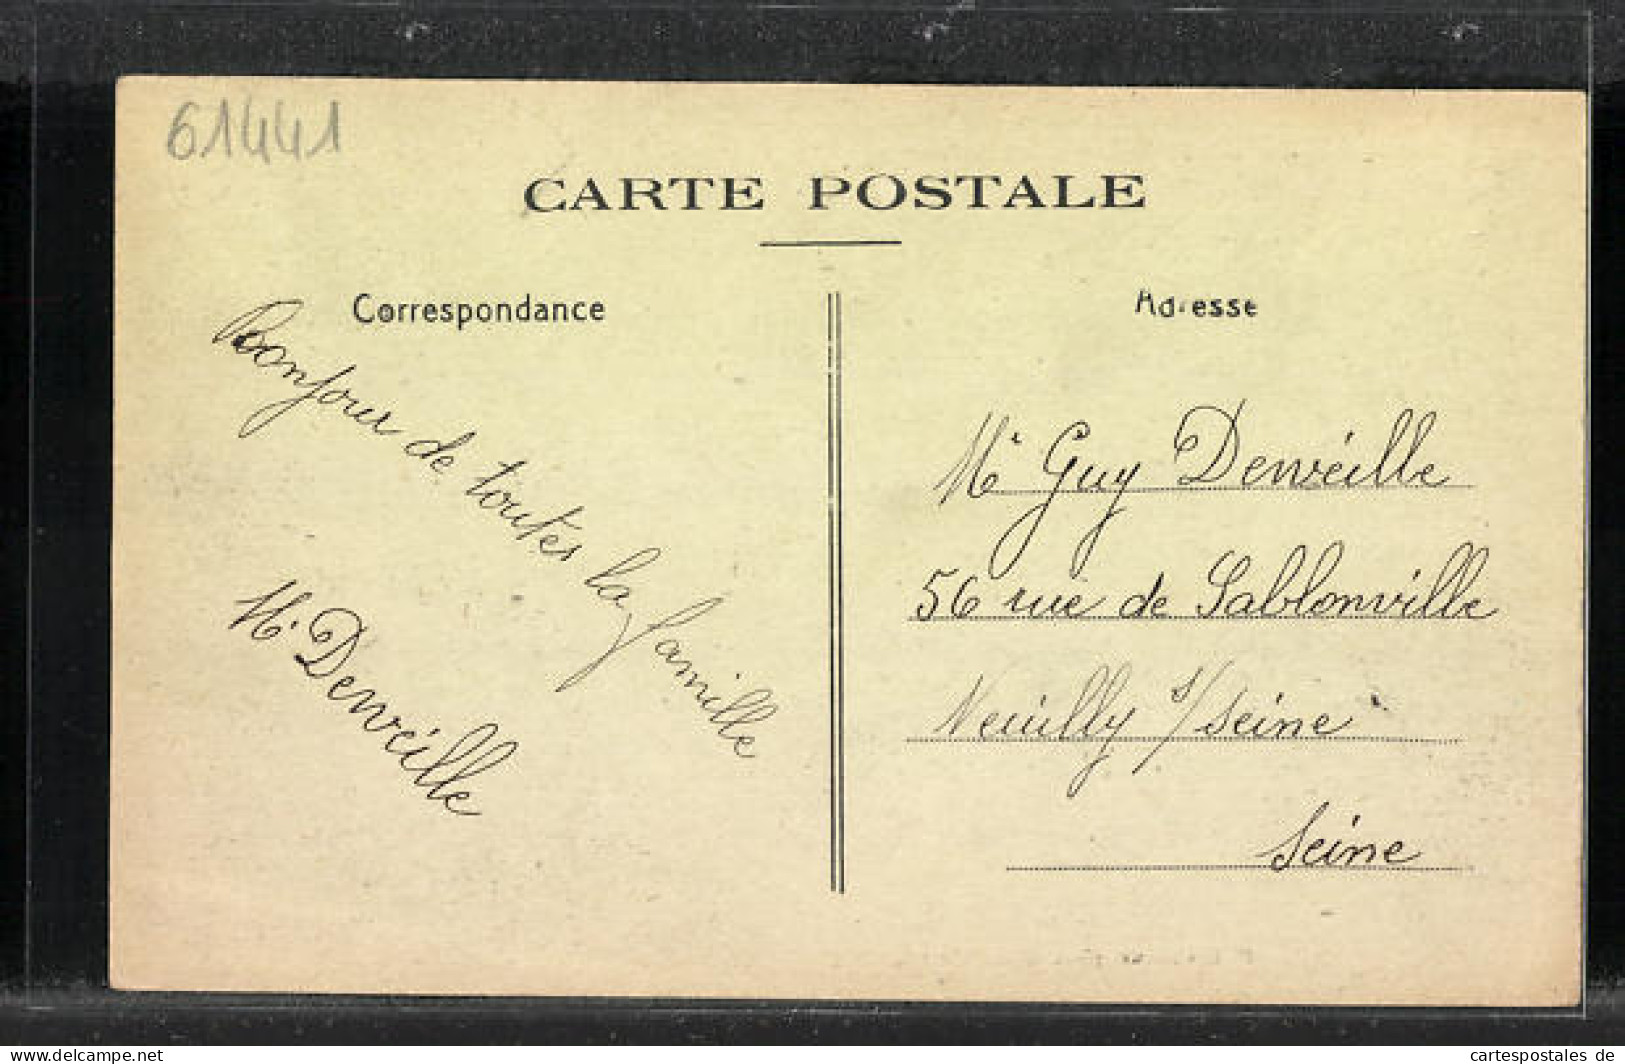 61441
CARTE POSTALE
Correspondance
Adresse
Bonjour de toutes la famille
M. Denveille
Mr Guy Denveille
56 rue de Sablonville
Neuilly s/seine
Seine
www.delcampe.net
cartespostales de